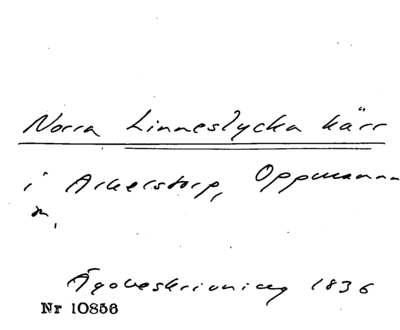 Norra Linneslycka kärr
i Arkelstorp, Oppmanna
m,
Ägobeskrivning 1836
Nr 10856